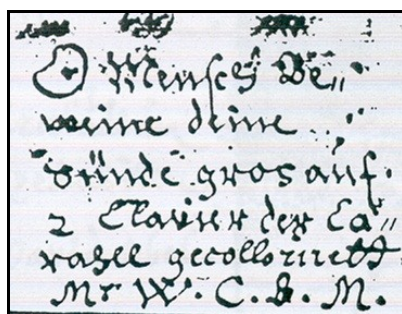 O Mensch Be„
weine deine
Sünde gros auf.
2 Clavier der Ca„
rahll gecollorirett
Mr W. C. B. M.